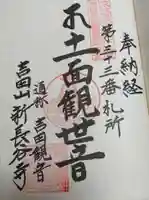 奉納経
第三十三番札所
十一面観世音
通称 吉田観音
吉田山新長谷寺